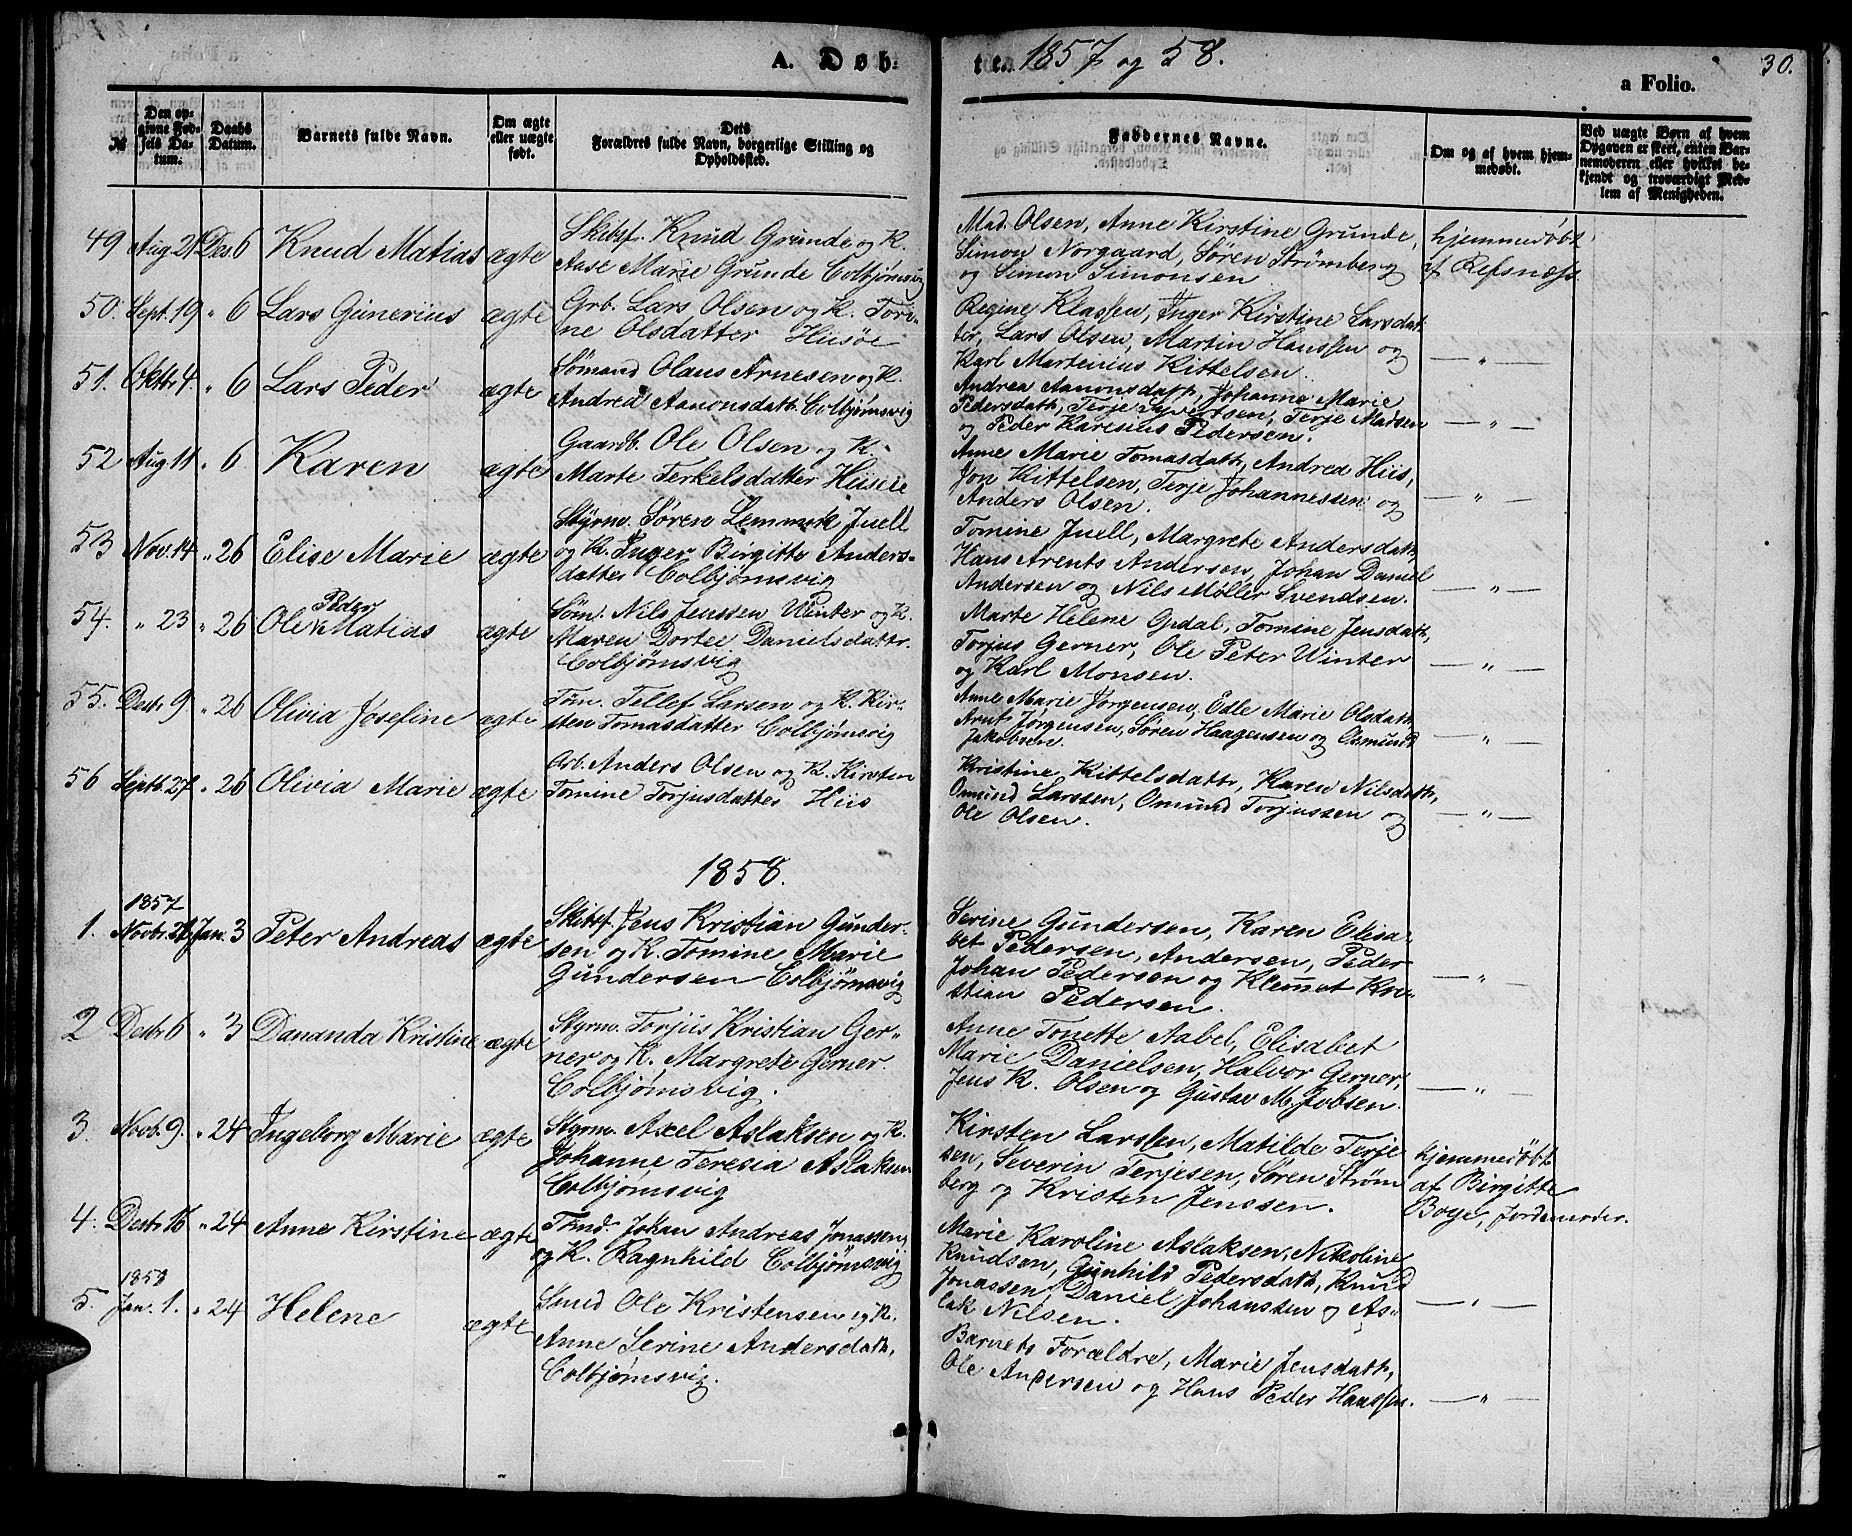 A. Døb-
te. 1857 og 58.
30.
a Folio.
№
Den op-
givne Fød-
sels Da-
tum.
Daabs
Datum.
Barnets fulde Navn.
Om ægte
eller uægte
født.
Dets
Forældres fulde Navn, borgerlige Stilling og
Opholdssted.
Faddernes Navne.
Om og af hvem hjem-
medøbt.
Ved uægte Børn af hvem
Opgaven er skeet, enten Bar-
nemoderen eller hvilket be-
kjendt og troværdigt Med-
lem af Menigheden.
49 Aug. 21 Des. 6 Knud Matias ægte
Skibsf. Knud Grunde og K.
Anse Marie Grunde Colbjømsvig
Mad. Olsen, Anne Kirstine Grunde,
Simon Norgaard, Søren Strømberg
og Simon Simonsen
hjemmedøbt
af Refsnæss
50. Sept. 19 " 6 Lars Gunerius ægte
Grb. Lars Olsen og K. Tori-
ne Olsdatter Hüsøe
Regine Klassen, Inger Kirstine Larsdat-
ter, Lars Olsen, Martin Hanssen og
Karl Martinius Kittelsen.
— " —
51. Oktbr 4. " 6 Lars Peder ægte
Sømand Olaus Arnesen og K.
Andrea Aanonsdatt. Colbjømsvig
Andrea Aanonsdatt, Johanne Marie
Pedersdath, Terje Syvertsen, Terje Madsen
og Peder Karesius Pedersen.
— " —
52 Aug. 11 " 6 Karen ægte
Gaardb. Ole Olsen og K.
Marte Terkelsdatter Hüsøe
Anne Marie Tomasdath, Andrea Hiis,
Jon Kittelsen, Terje Johannessen og
Anders Olsen.
— " —
53 Nov. 14. " 26 Elise Marie ægte
Styrm. Søren Lemmek Juell
og K. Inger Birgitte Anders-
datter Colbjømsvig
Tomine Juell, Margrete Andersdath,
Hans Arents Andersen, Johan Daniel
Andersen og Nils Møller Svendsen.
— " —
54. " 23 " 26 Ole Peder Matias ægte
Søm. Nils Jenssen Winter og K.
Maren Dortee Danielsdattr.
Colbjømsvig
Marte Helene Gjdal, Tomine Jensdath,
Torjus Gerner, Ole Peter Winter
og Karl Monsen.
— " —
55. Decbr 9. " 26 Olivia Josefine ægte
Tøm. Tellef Larsen og K. Kir-
sten Tomasdatter Colbjømsvig
Anne Marie Jørgensen, Edle Marie Olsdath,
Arnt Jørgensen, Søren Haagensen og Osmund
Jakobsen.
— " —
56 Septb. 27. " 26 Olivia Marie ægte
Arb. Anders Olsen og K. Kirsten
Tomine Torjusdatter Hiis
Kristine Kittelsdattr, Karen Nilsdath,
Omund Larssen, Omund Torjussen og
Ole Olsen.
— " —
1858.
1857
1. Novbr. 21 Jan. 3 Peter Andreas ægte
Skibsf. Jens Kristian Gunder-
sen og K. Tomine Marie
Gundersen Colbjømsvig
Serine Gundersen, Karen Elisa-
bet Pedersen, Andersen, Peder
Johan Pedersen og Klemet Kri-
stian Pedersen.
— " —
2 Decbr 6 " 3 Dananda Kristine ægte
Styrm. Torjüs Kristian Ger-
ner og K. Margrete Gerner.
Colbjømsvig.
Anne Tonette Aabel, Elisabet
Marie Danielsen, Halvor Gerner,
Jens K. Olsen og Gustav M. Jvbsen.
— " —
3. Novb. 9. " 24 Ingeborg Marie ægte
Styrm. Axel Aslaksen og K.
Johanne Teresia Aslaksen
Colbjømsvig
Kirsten Larssen, Matilde Terje-
sen, Severin Terjesen, Søren Strøm-
berg og Kristen Jenssen.
hjemmedøbt
af Birgitte
Boye, Jordemoder.
4. Decbr 16 " 24 Anne Kirstine ægte
Tømd. Johan Andreas Jonassen
og K. Ragnhild Colbjømsvig
Marie Karoline Aslaksen, Nikoline
Knudsen, Gunhild Pedersdath, Knud
Jonassen, Daniel Johanssen og As-
lak Nilsen.
— " —
1858
5. Jan. 1. " 24 Helene ægte
Smed Ole Kristensen og K.
Anne Serine Andersdath,
Colbjømsvig.
Barnets Forældre, Marie Jensdath,
Ole Andersen og Hans Peder Hanssen.
— " —